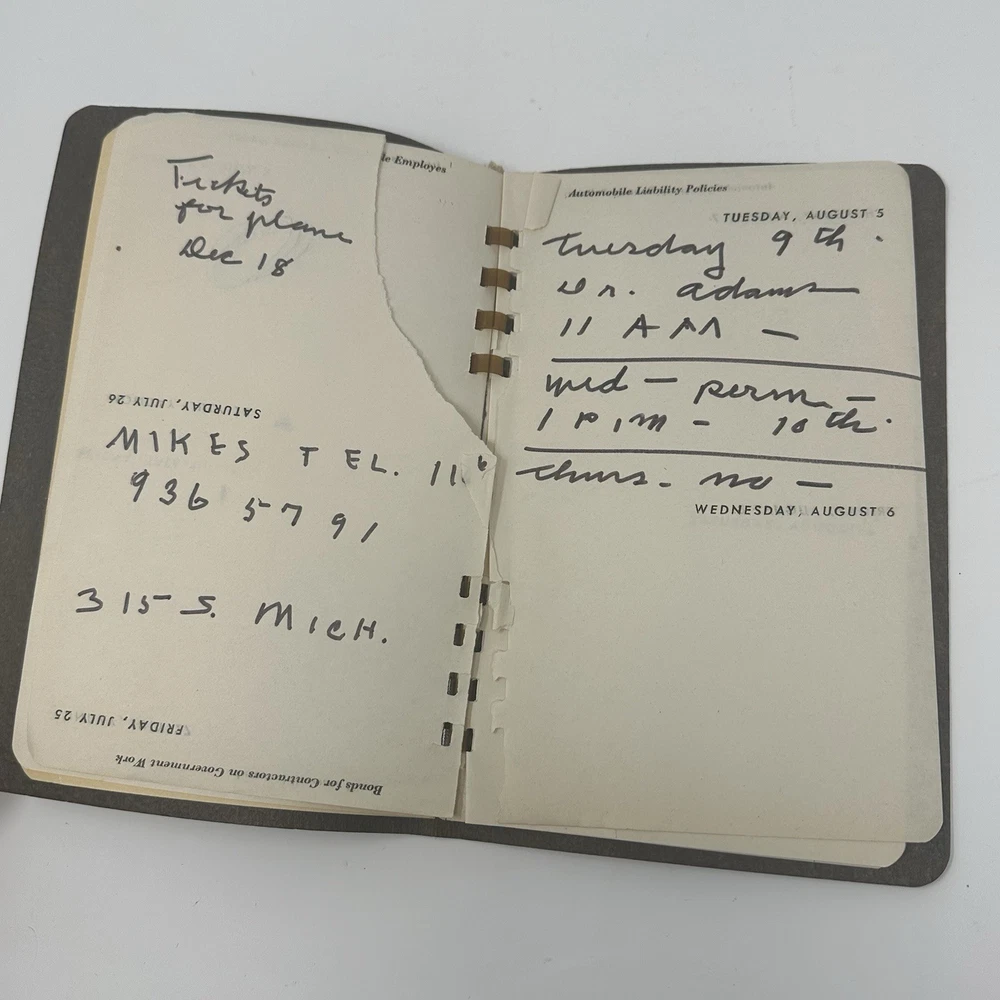 Tickets
for plane
Dec 18
SATURDAY, JULY 26
MIKES TEL. 11
936 5791
315 S. MICH.
FRIDAY, JULY 25
Bonds for Contractors on Government Work
le Employes
Automobile Liability Policies
TUESDAY, AUGUST 5
Tuesday 9th.
Dr. adams
11 AM —
wed — perm —
1 P.M — 10th.
thurs. no —
WEDNESDAY, AUGUST 6